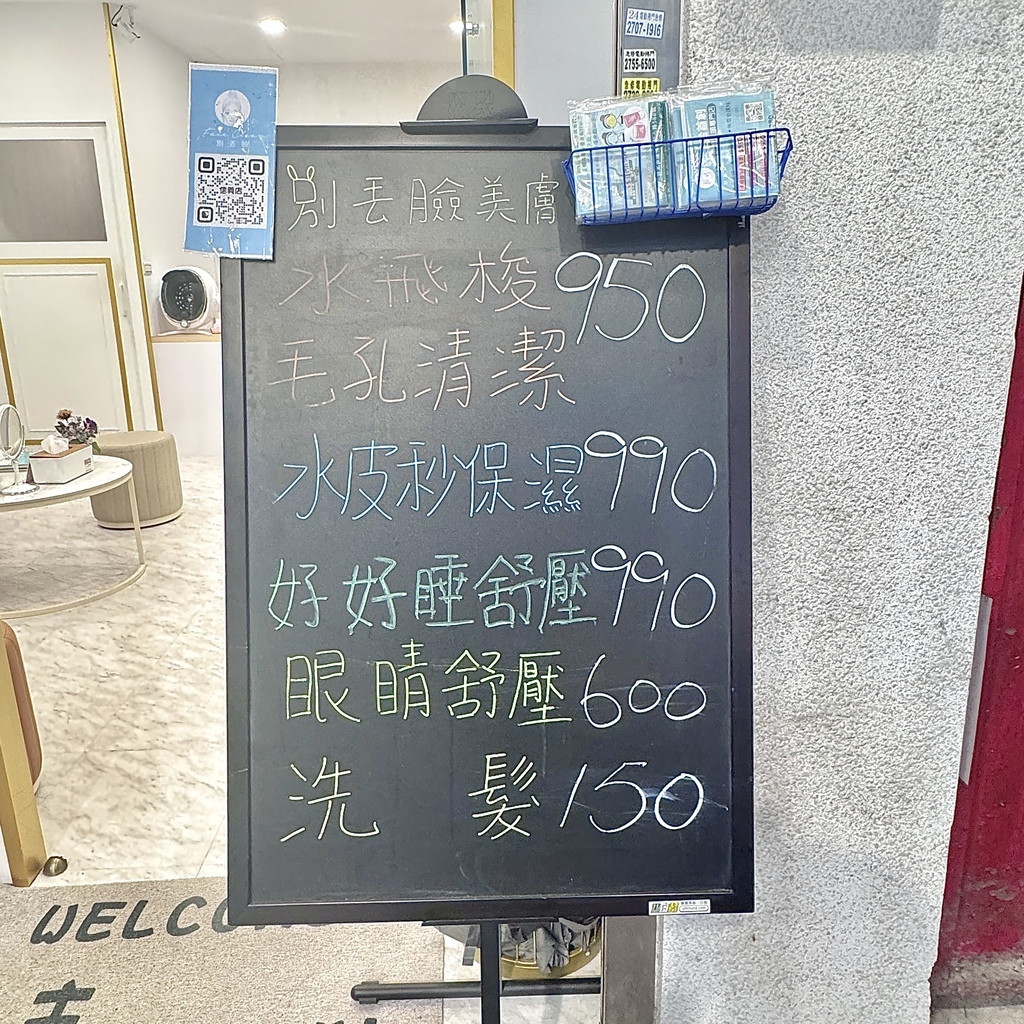 2707-1916
2755-6500
信義店
別丟臉美膚
水飛梭 950
毛孔清潔
水皮秒保濕 990
好好睡舒壓 990
眼睛舒壓 600
洗 髮 150